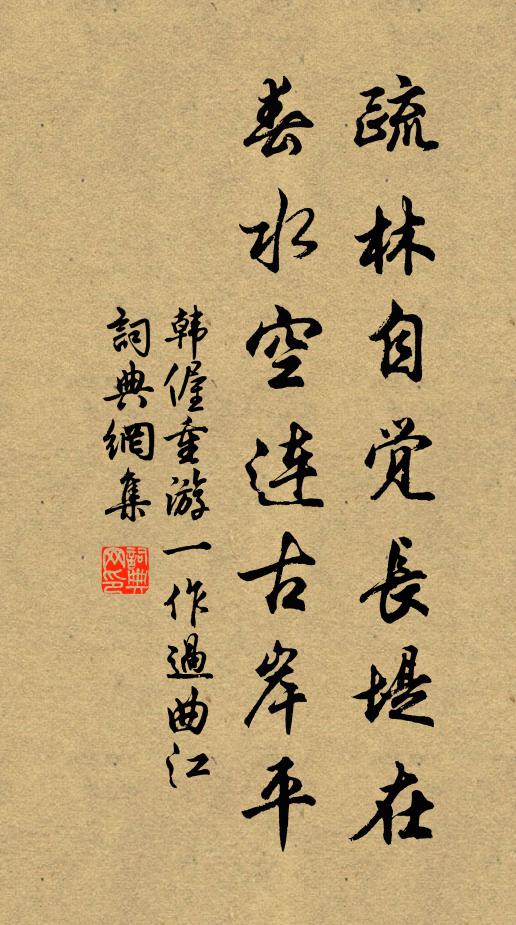 疏林自觉長堤在
春水空連古岸平
韩偓重游一作過曲江
詞典網集
詞典网印